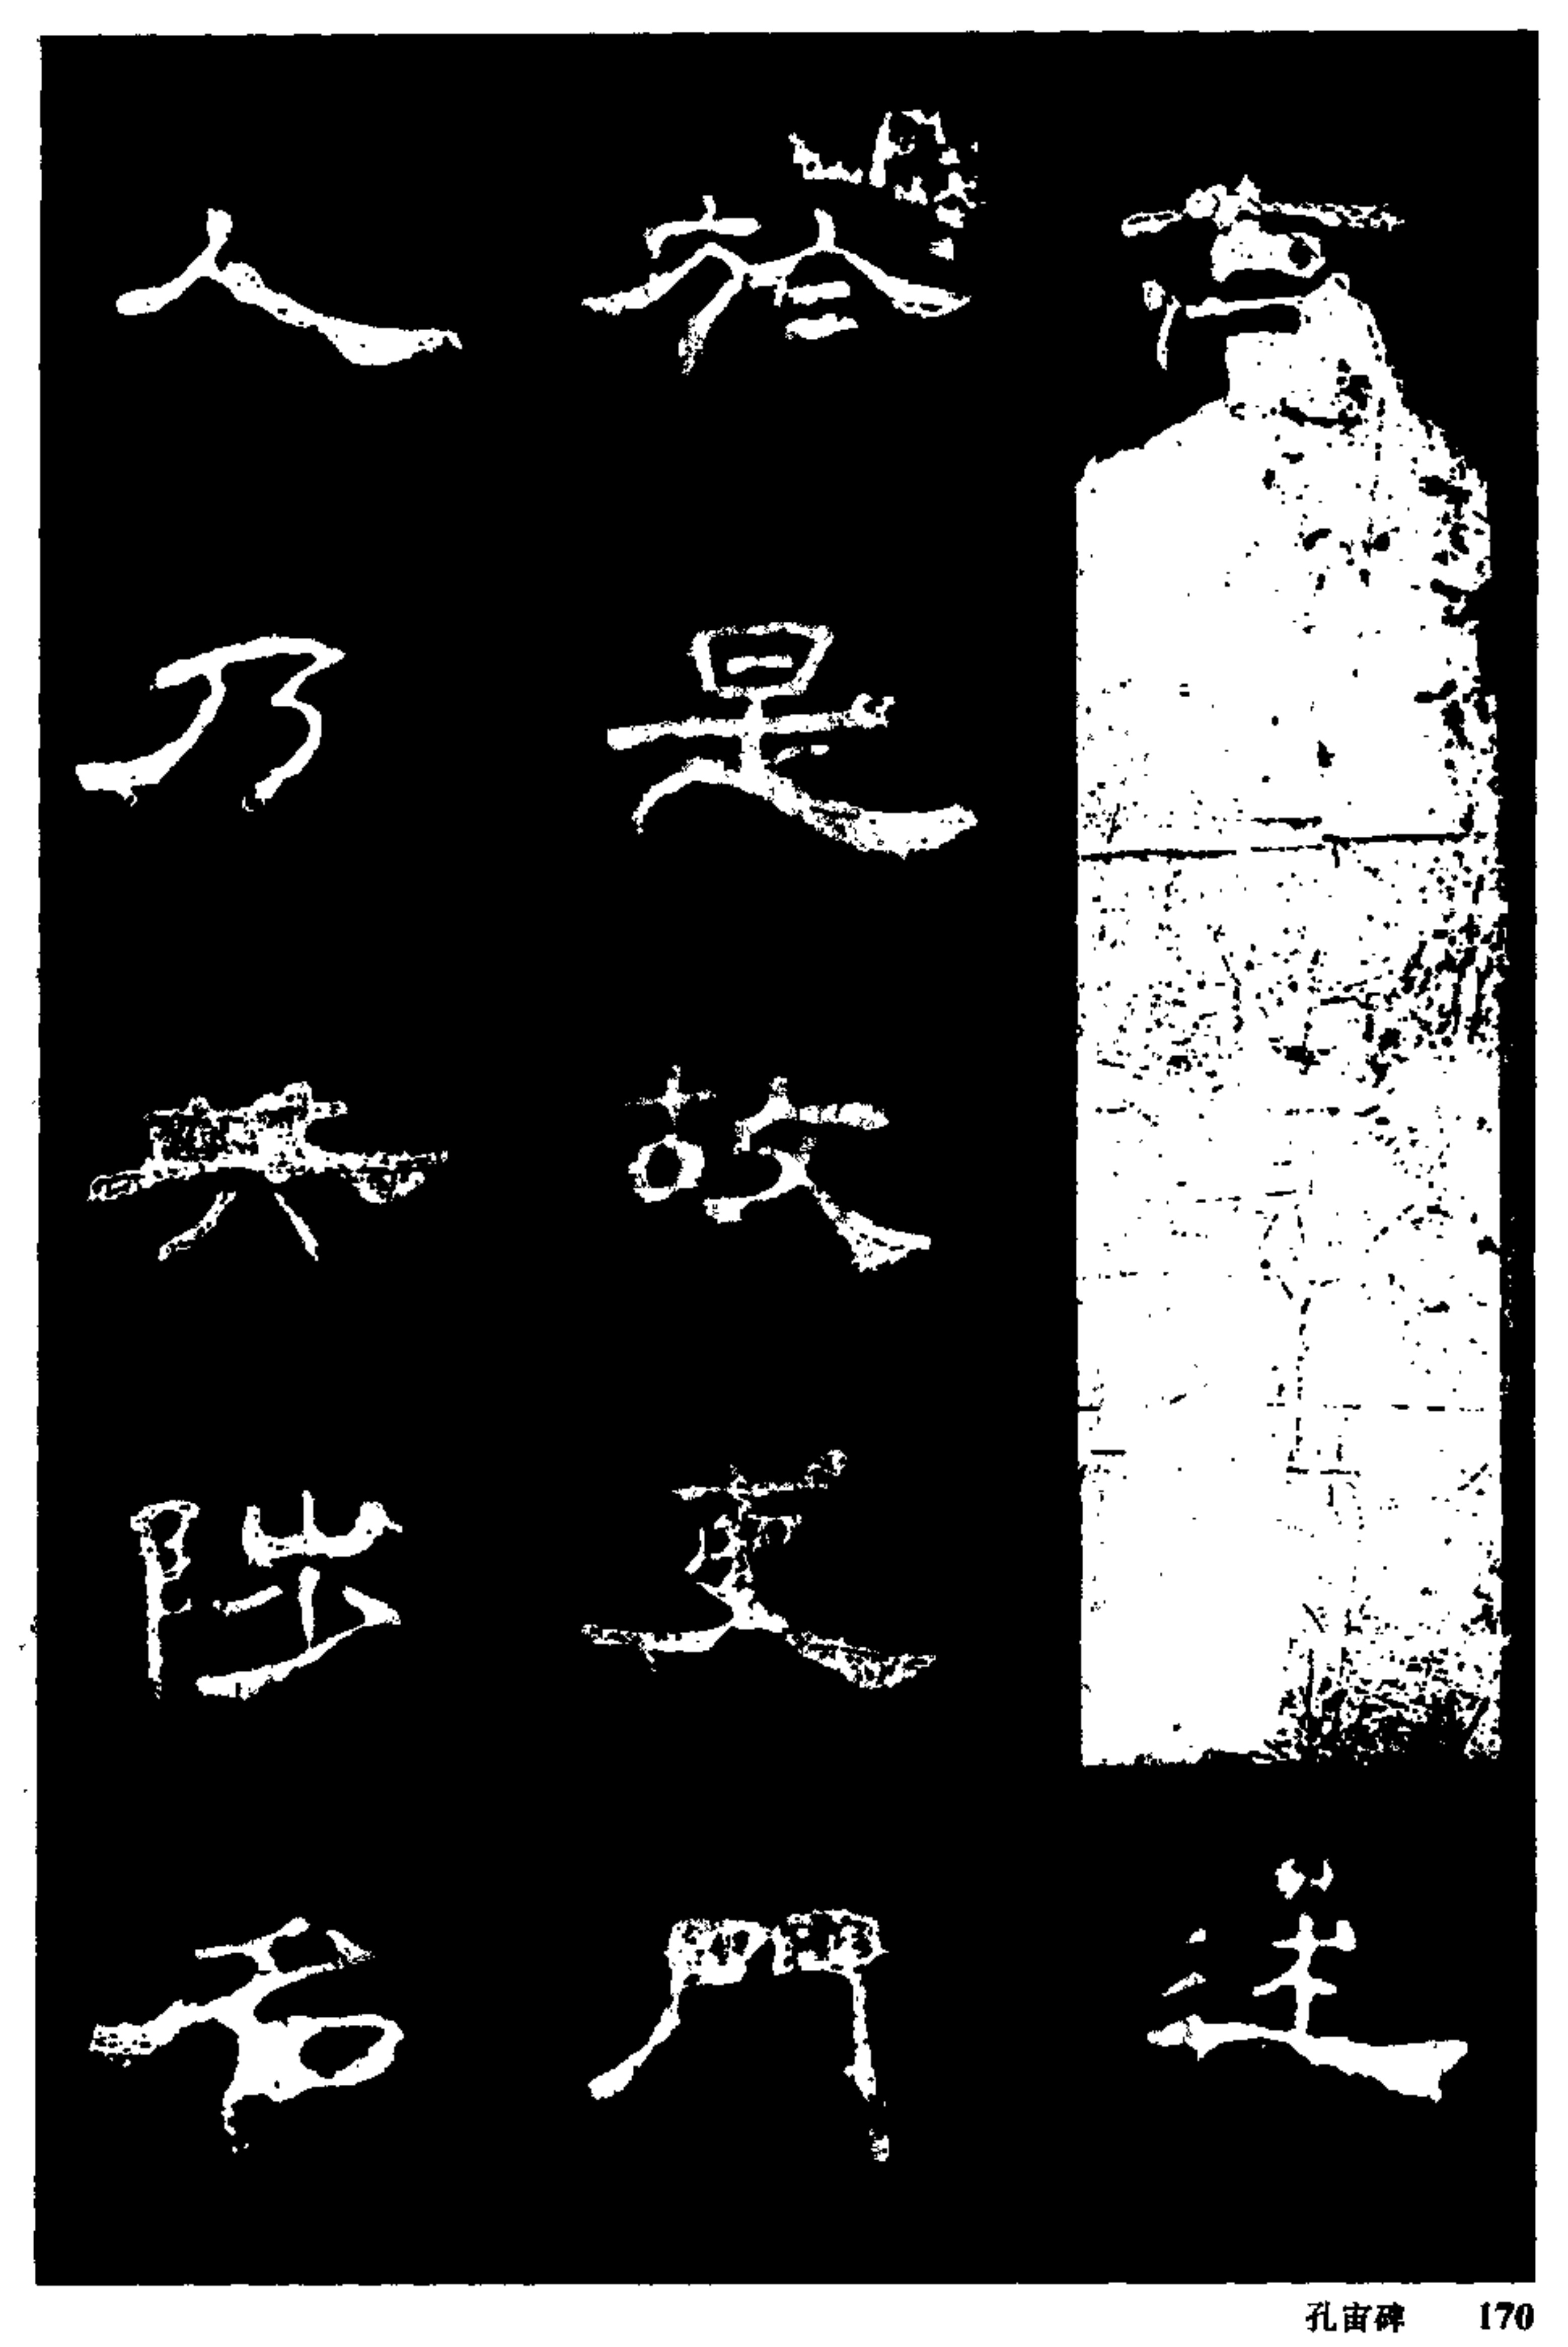 高述
於是故吏門
人乃共陟名
孔宙碑 170